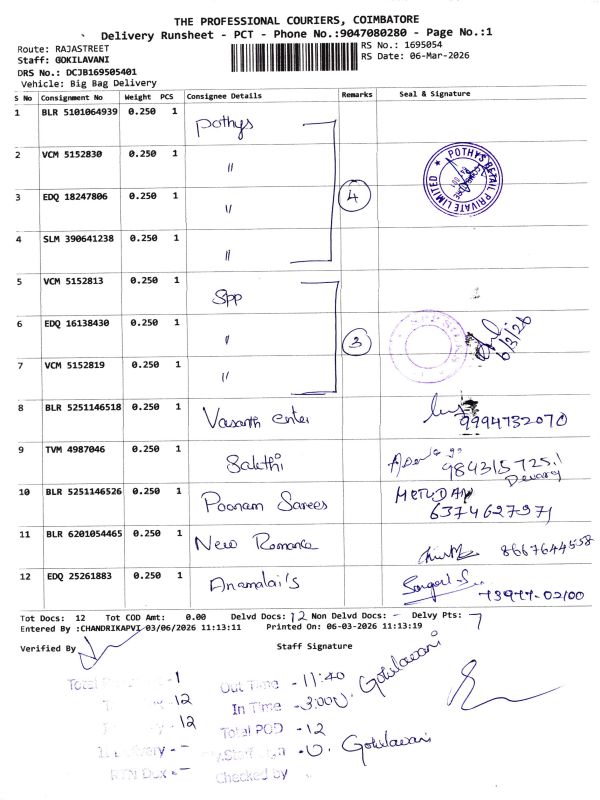 THE PROFESSIONAL COURIERS, COIMBATORE
Delivery Runsheet - PCT - Phone No.:9047080280 - Page No.:1
Route: RAJASTREET
RS No.: 1695054
Staff: GOKILAVANI
RS Date: 06-Mar-2026
DRS No.: DCJB169505401
Vehicle: Big Bag Delivery
S No Consignment No Weight PCS Consignee Details Remarks Seal & Signature
1 BLR 5101064939 0.250 1 Pothys
2 VCM 5152830 0.250 1 "
POTHYS RETAIL PRIVATE LIMITED
3 EDQ 18247806 0.250 1 " 4
4 SLM 390641238 0.250 1 "
5 VCM 5152813 0.250 1 Spp
6 EDQ 16138430 0.250 1 " 3 6/3/26
7 VCM 5152819 0.250 1 "
8 BLR 5251146518 0.250 1 Vasanth enter 9994732070
9 TVM 4987046 0.250 1 Sakthi
Devaraj
10 BLR 5251146526 0.250 1 Poonam Sarees
11 BLR 6201054465 0.250 1 New Romance 8667644558
12 EDQ 25261883 0.250 1 Anamalai's
Tot Docs: 12 Tot COD Amt: 0.00 Delvd Docs: 12 Non Delvd Docs: - Delvy Pts: 7
Entered By :CHANDRIKAPVI 03/06/2026 11:13:11 Printed On: 06-03-2026 11:13:19
Verified By Staff Signature
Out Time - 11:40
In Time - 3:00
Total POD - 12
Gokilavani
- U. Gokilavani
Checked by